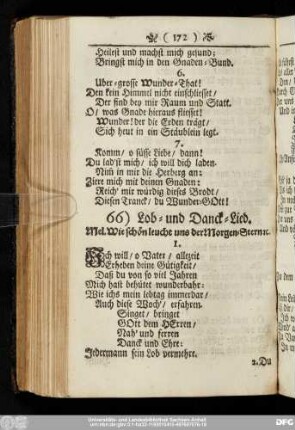 ( 172 )
Heilest und machst mich gesund;
Bringst mich in den Gnaden-Bund.
6.
Uber-grosse Wunder-That!
Den kein Himmel nicht einschliesset/
Der find bey mir Raum und Statt.
O/ was Gnade hieraus fliesset!
Wunder! der die Erden trägt/
Sich heut in ein Stäublein legt.
7.
Komm/ o süsse Liebe/ dann!
Du ladst mich/ ich will dich laden.
Nim̃ in mir die Herberg an:
Ziere mich mit deinen Gnaden:
Reich' mir würdig dieses Brodt/
Diesen Tranck/ du Wunder-GOtt!
66) Lob- und Danck-Lied.
Mel. Wie schön leucht uns der Morgen-Stern ꝛc.
1.
Ich will/ o Vater/ allezeit
Erheben deine Gütigkeit/
Daß du von so viel Jahren
Mich hast behütet wunderbahr:
Wie ichs mein lebtag immerdar/
Auch diese Woch'/ erfahren.
Singet/ bringet
GOtt dem HErren/
Nah' und ferren
Danck und Ehre:
Jedermann sein Lob vermehre.
2. Du